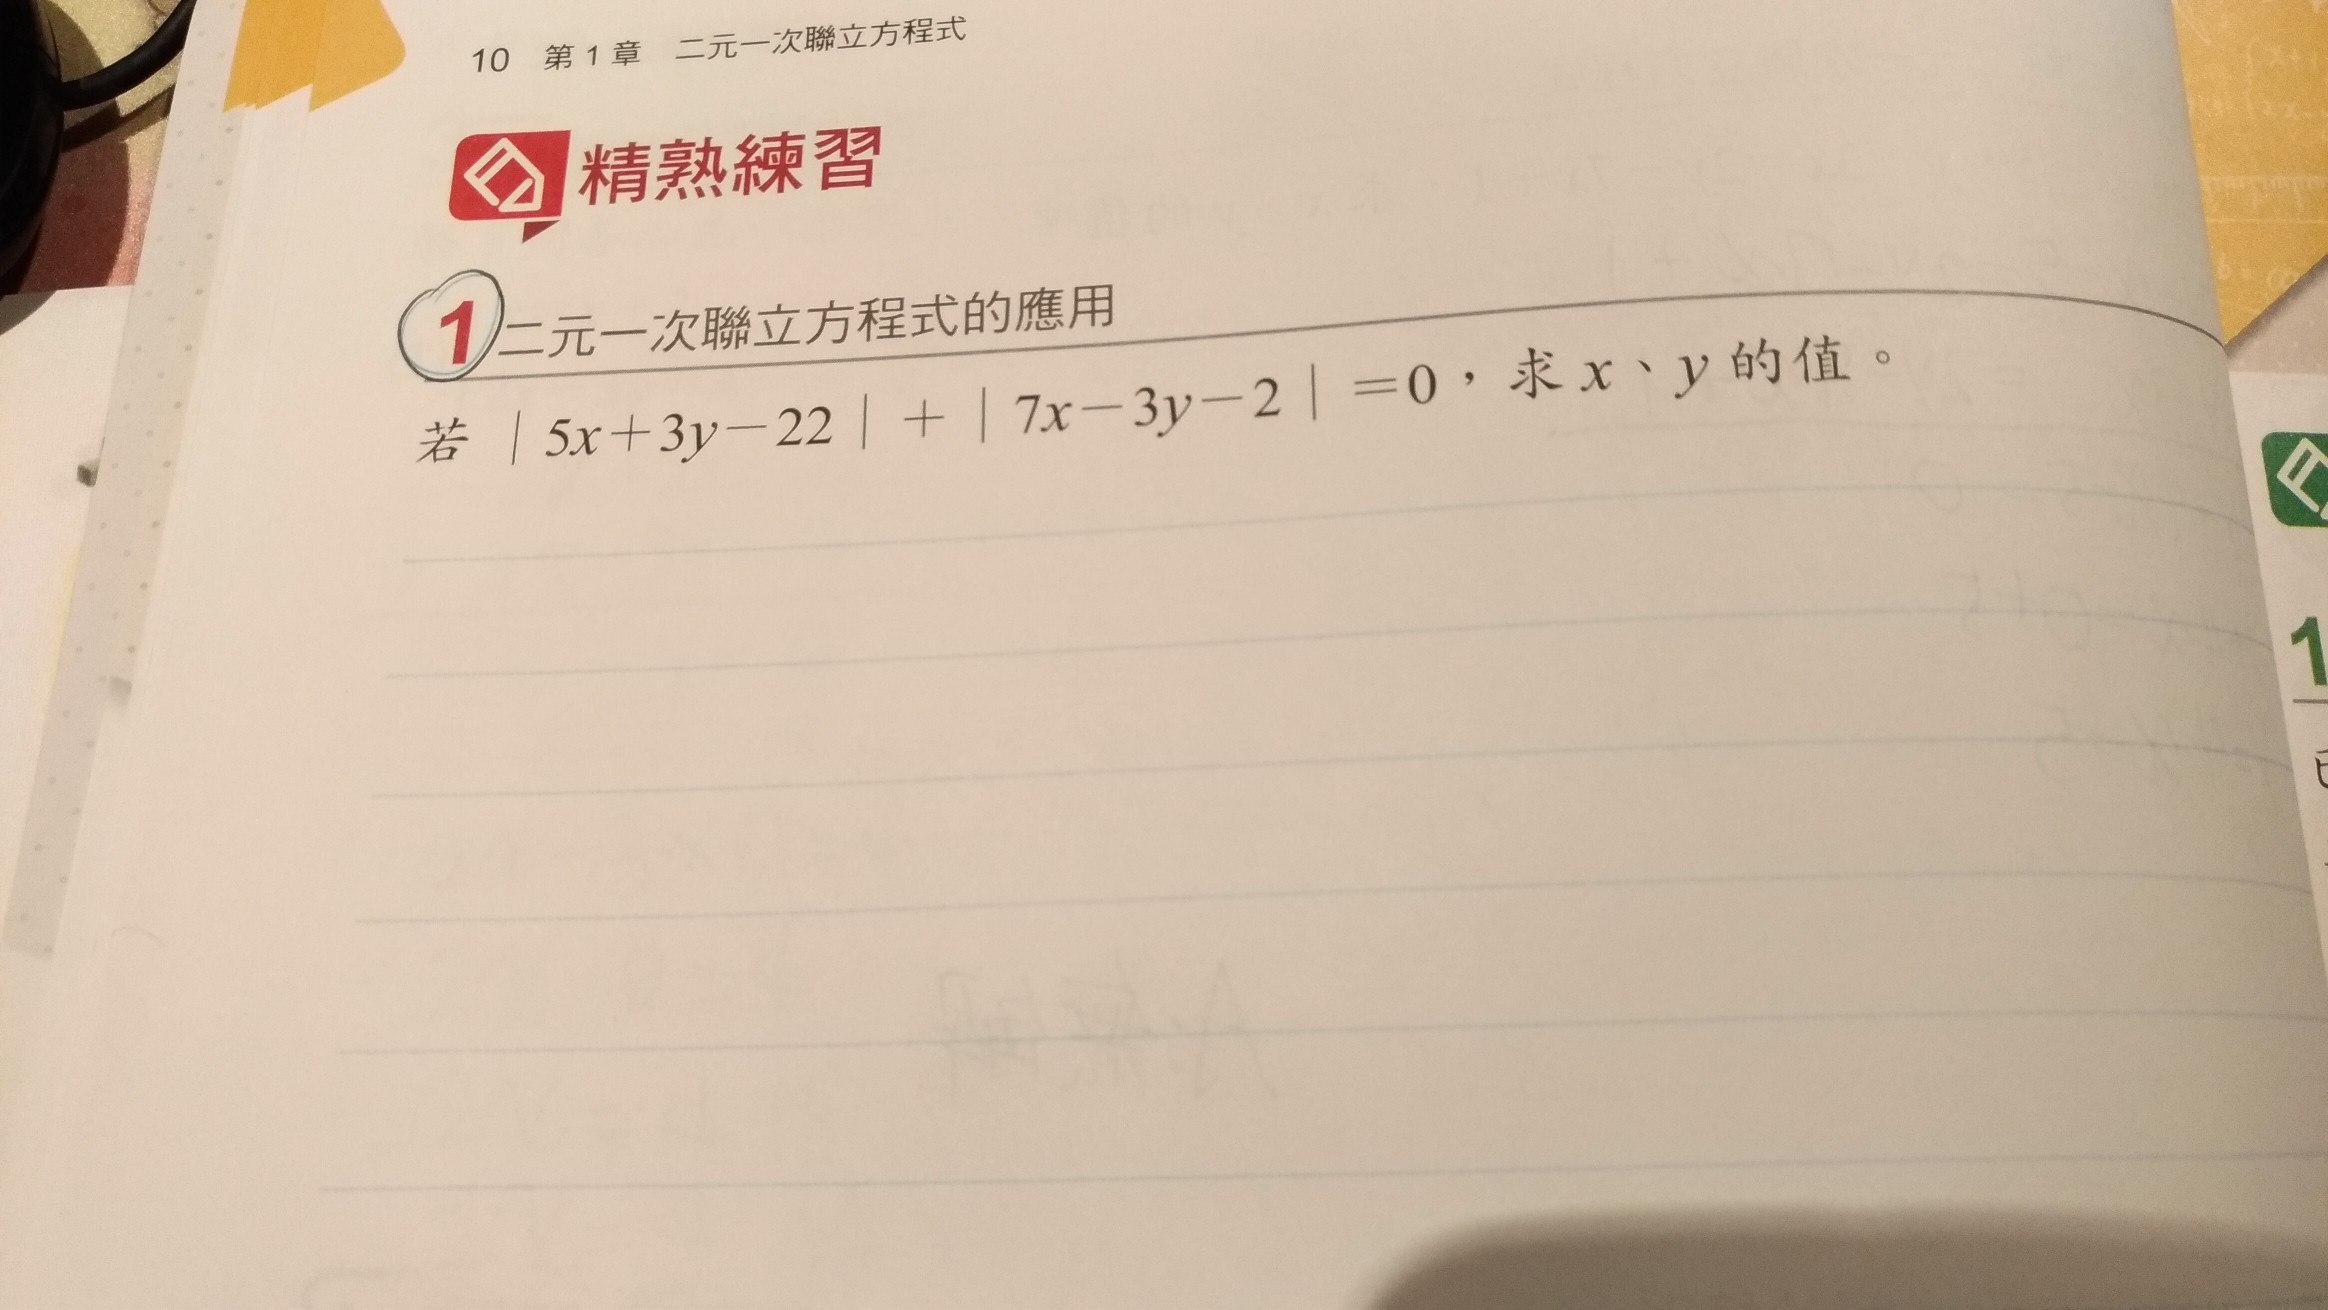 10 第1章 二元一次聯立方程式
精熟練習
1 二元一次聯立方程式的應用
若 | 5x+3y-22 | + | 7x-3y-2 | =0，求 x、y 的值。
1